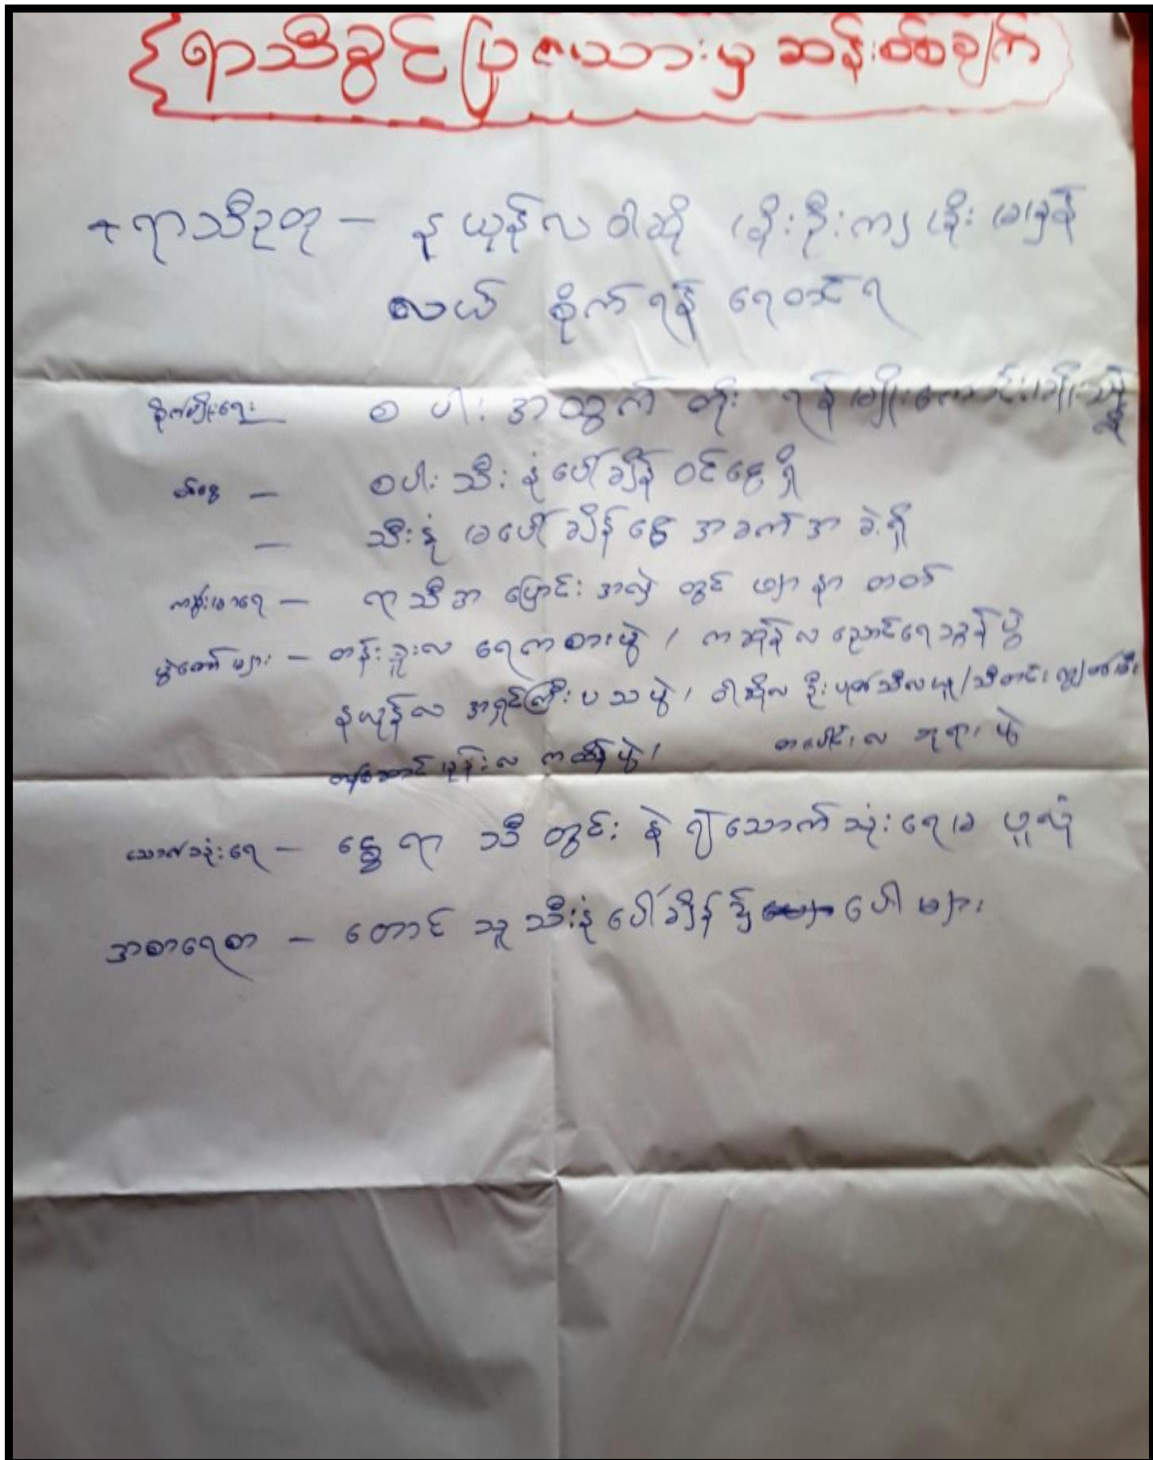 ရာသီခွင်ပြဇယားမှ ဆန်းစစ်ချက်
+ ရာသီဥတု – နယုန်လ ဝါဆို မိုးဦးကျ မိုးမမှန်
လယ် စိုက်ရန် ရေတင်ရ
စိုက်ပျိုးရေး စပါး အထွက် တိုး ရန် မျိုးကောင်း
– စပါး သီးနှံပေါ်ချိန် ဝင်ငွေရှိ
– သီးနှံ မပေါ်ချိန် ငွေ အခက်အခဲရှိ
ကျန်းမာရေး – ရာသီအပြောင်းအလဲ တွင် ဖျားနာ တတ်
ပွဲတော်များ – တန်းခူးလ ရေကစားပွဲ / ကဆုန်လ ညောင်ရေသွန်ပွဲ
နယုန်လ အရှင်ကြီး ပသပွဲ / ဝါဆိုလ ဦးပုတ်သီလယူ / သီတင်းကျွတ်မီး
တန်ဆောင်မုန်းလ ကထိန်ပွဲ / တပေါင်းလ ဘုရားပွဲ
သောက်သုံးရေ – နွေရာသီတွင် နဲ၍ သောက်သုံးရေမဖူလုံ
အစာရေစာ – တောင်သူ သီးနှံပေါ်ချိန်၌ ပေါများ